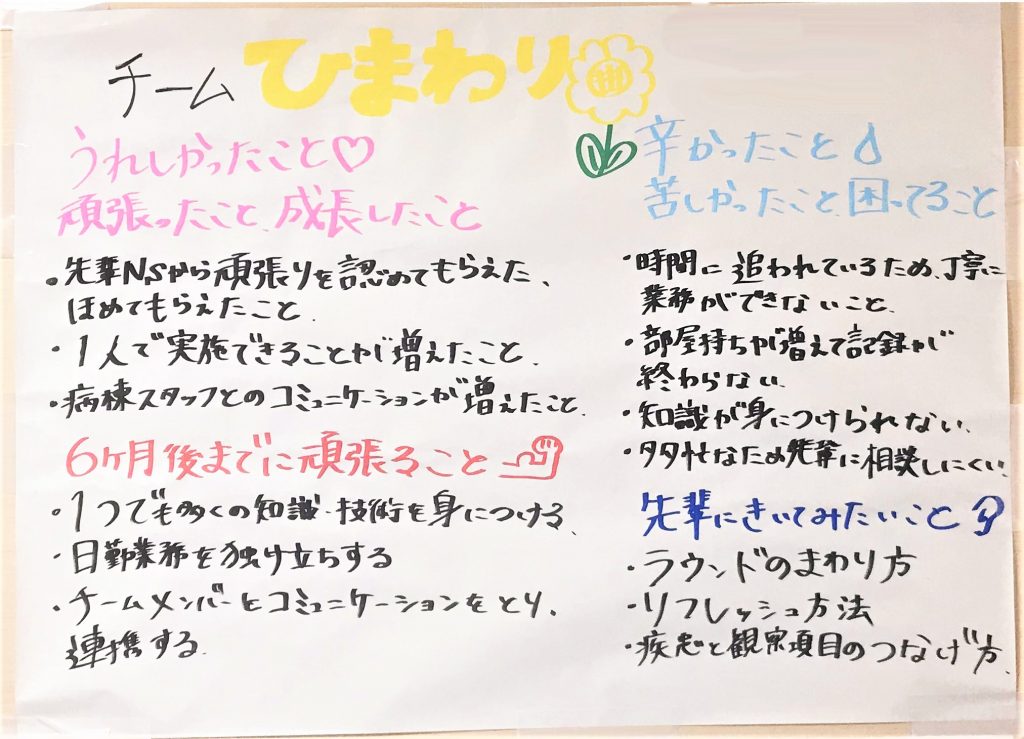 チームひまわり
うれしかったこと♡
頑張ったこと、成長したこと
・先輩NSから頑張りを認めてもらえた、
ほめてもらえたこと.
・1人で実施できることが増えたこと.
・病棟スタッフとのコミュニケーションが増えたこと.
6ヶ月後までに頑張ること
・1つでも多くの知識・技術を身につける
・日勤業務を独り立ちする
・チームメンバーとコミュニケーションをとり、
連携する.
辛かったこと
苦しかったこと、困ってること
・時間に追われているため、丁寧に
業務ができないこと.
・部屋持ちが増えて記録が
終わらない.
・知識が身につけられない.
・多忙なため先輩に相談しにくい.
先輩にきいてみたいこと
・ラウンドのまわり方
・リフレッシュ方法
・疾患と観察項目のつなげ方.